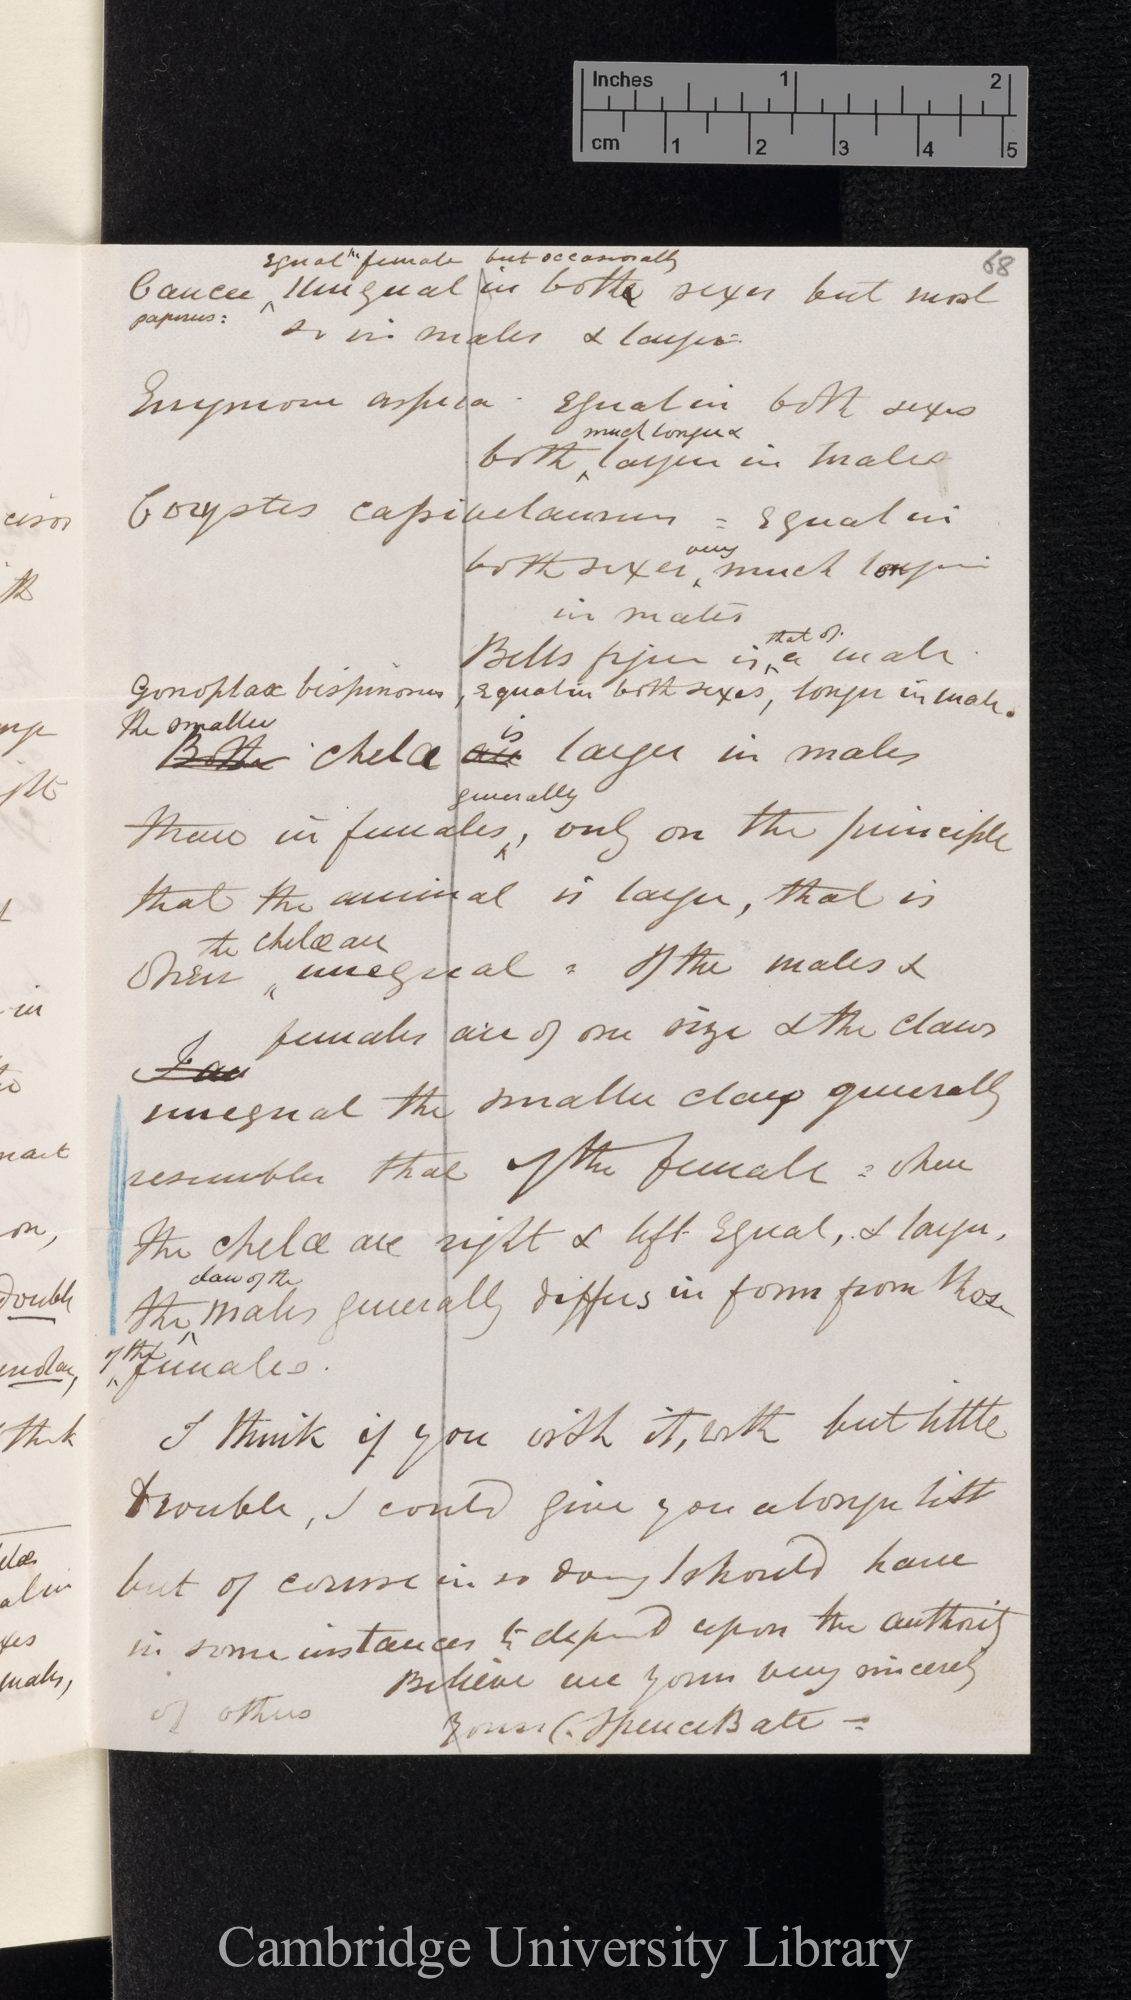 Inches 1 2
cm 1 2 3 4 5
68
Equal in female but occasionally
Cancer Unequal in both sexes but most
pagurus:
so in males & larger
Eurynome aspera Equal in both sexes
much longer &
both larger in males
Corystes cassivelaunus = Equal in
very
both sexes, much longer
in males
that of
Bells figure is a male.
Gonoplax bispinosus, Equal in both sexes, longer in male.
the smaller is
Both chelæ are larger in males
generally
than in females, only on the principle
that the animal is larger, that is
the chelæ are
when unequal = If the males &
females are of one size & the claws
unequal the smaller claw generally
resembles that of the female = when
the chelæ are right & left Equal, & larger,
claw of the
the males generally differs in form from those
of the
females.
I think if you wish it, with but little
trouble, I could give you a longer list
but of course in so doing I should have
in some instances to depend upon the authority
of others
Believe me yours very sincerely
Yours C. Spence Bate =
cisor
th
in
on,
double
think
males,
Cambridge University Library